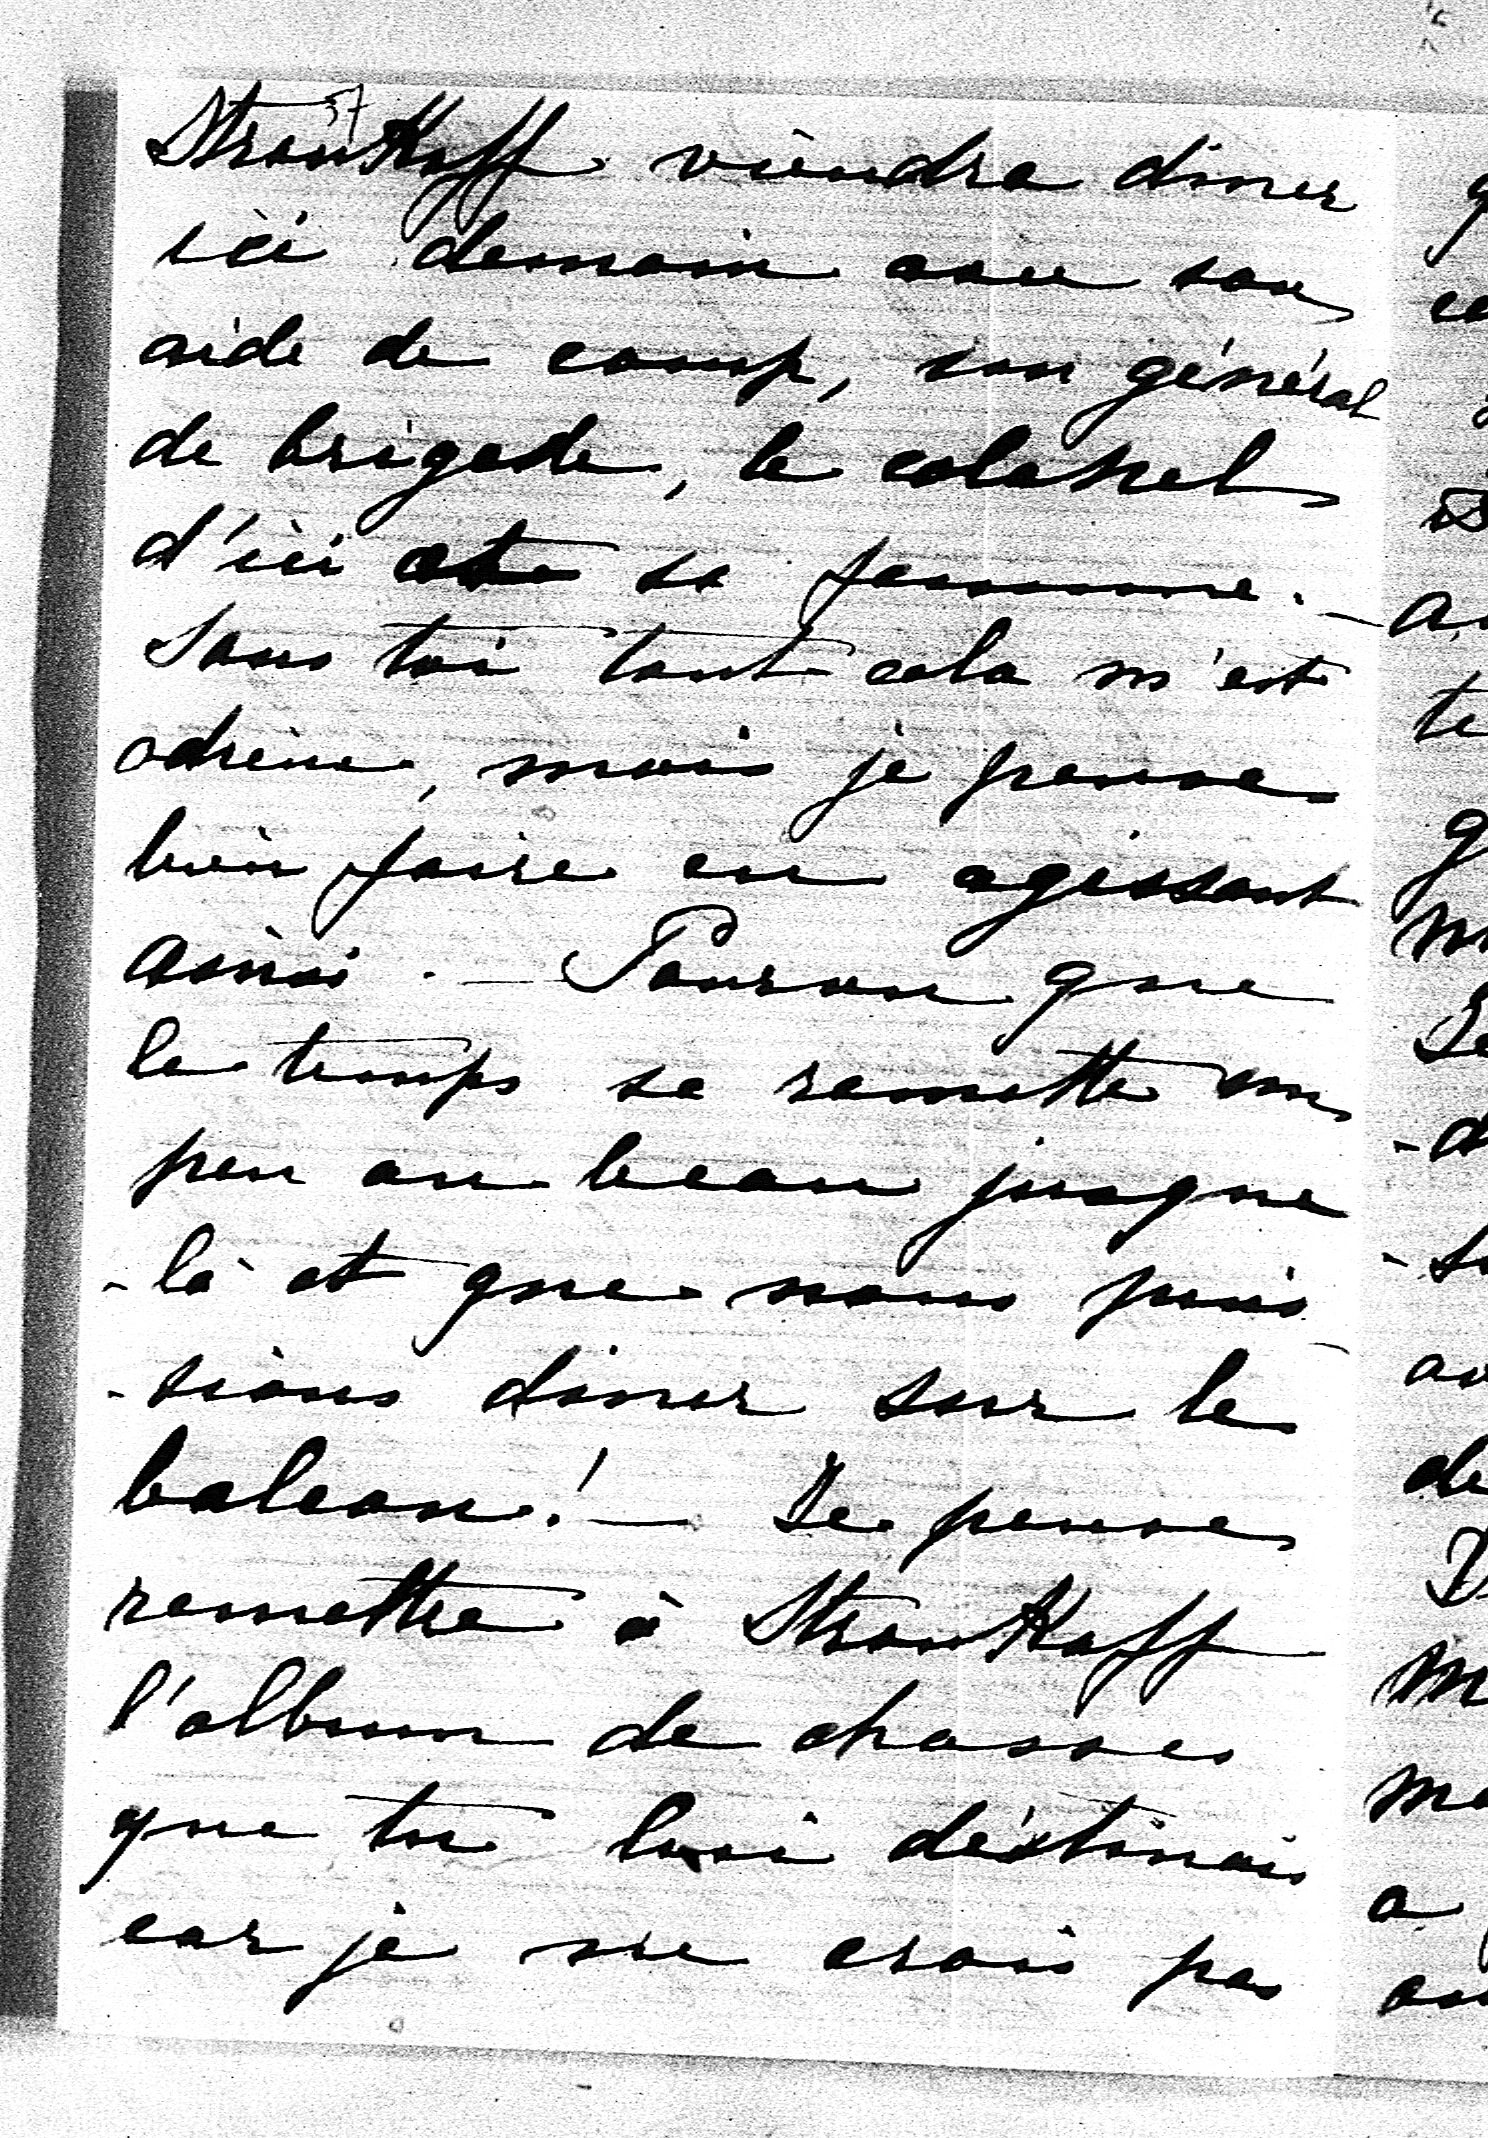 57
Stroukoff viendra diner
ici demain avec son
aide de camp, son général
de brigade, le colonel
d'ici et sa femme. —
Sans toi tout cela m'est
odieux, mais je pense
bien faire en agissant
ainsi. — Pourvu que
le temps se remette un
peu au beau jusque
-là et que nous puis
-sions diner sur le
balcon! — Je pense
remettre à Stroukoff
l'album de chasses
que tu lui déstinais
car je ne crois pas